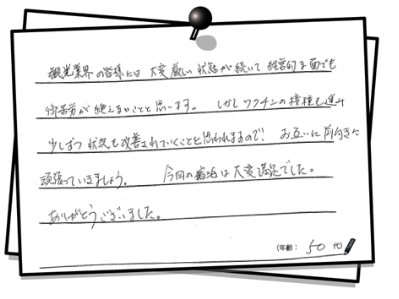 観光業界の皆様には 大変厳しい状態が続いて 経営的な面でも
御苦労が絶えないことと思います。しかしワクチンの接種も進み
少しずつ状況も改善されていくことと思われますので! お互いに前向きに
頑張っていきましょう。 今回の宿泊は大変満足でした。
ありがとうございました。
(年齢: 50代)